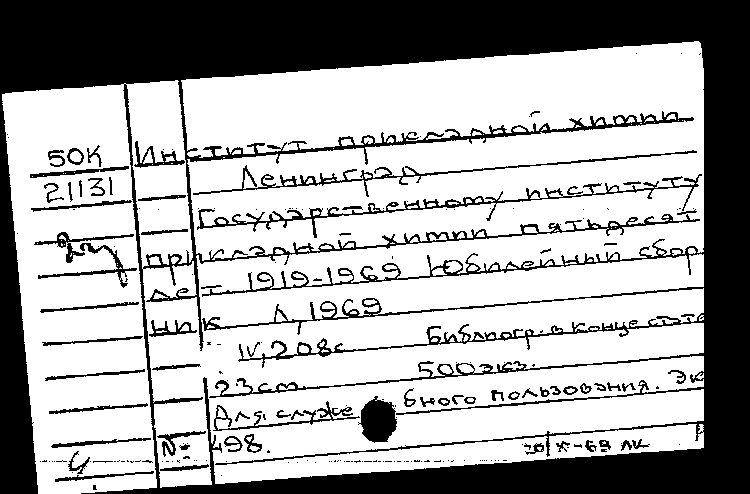 50К Институт прикладной химии
21131 Ленинград
Государственному институту
прикладной химии пятьдесят
лет. 1919-1969 Юбилейный сбор
ник Л., 1969
IV, 208с Библиогр. в конце стате
23 см. 500 экз.
Для служебного пользования. Эк
№ 498.
20/X-69 лк